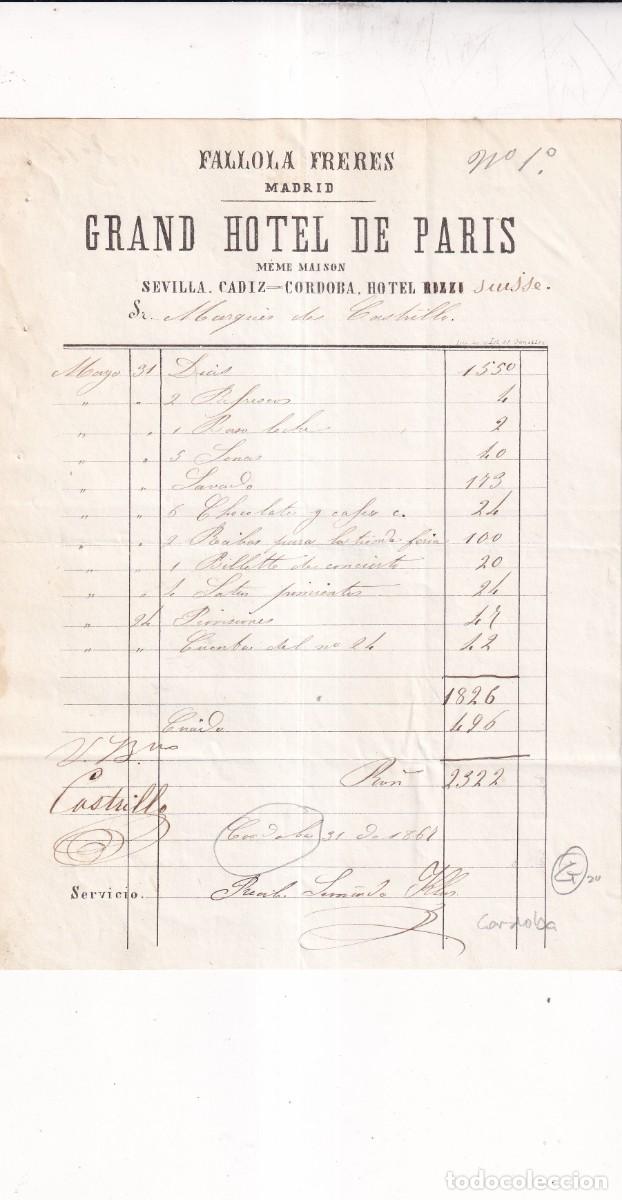 FALLOLA FRERES Nº 1º
MADRID
GRAND HOTEL DE PARIS
MÉME MAISON
SEVILLA. CADIZ=CORDOBA. HOTEL RIZZI Suisse.
Sr. Marques de Castrillo.
Mayo 31 Dias 1550
" " 2 Refrescos 4
" " 1 Vaso leche 2
" " 5 40
" " Lavado 173
" " 6 Chocolates y cafes c. 24
" " 2 para la tienda feria 100
" " 1 Billette de concierto 20
" " 4 Latas pimientos 24
" 24 47
" " Cuentas del nº 24 42
1826
Criado 496
V. Bno
Rvn 2322
Castrillo
Cordoba 31 de 186
Servicio. Recibi
Cordoba
20
todocoleccion